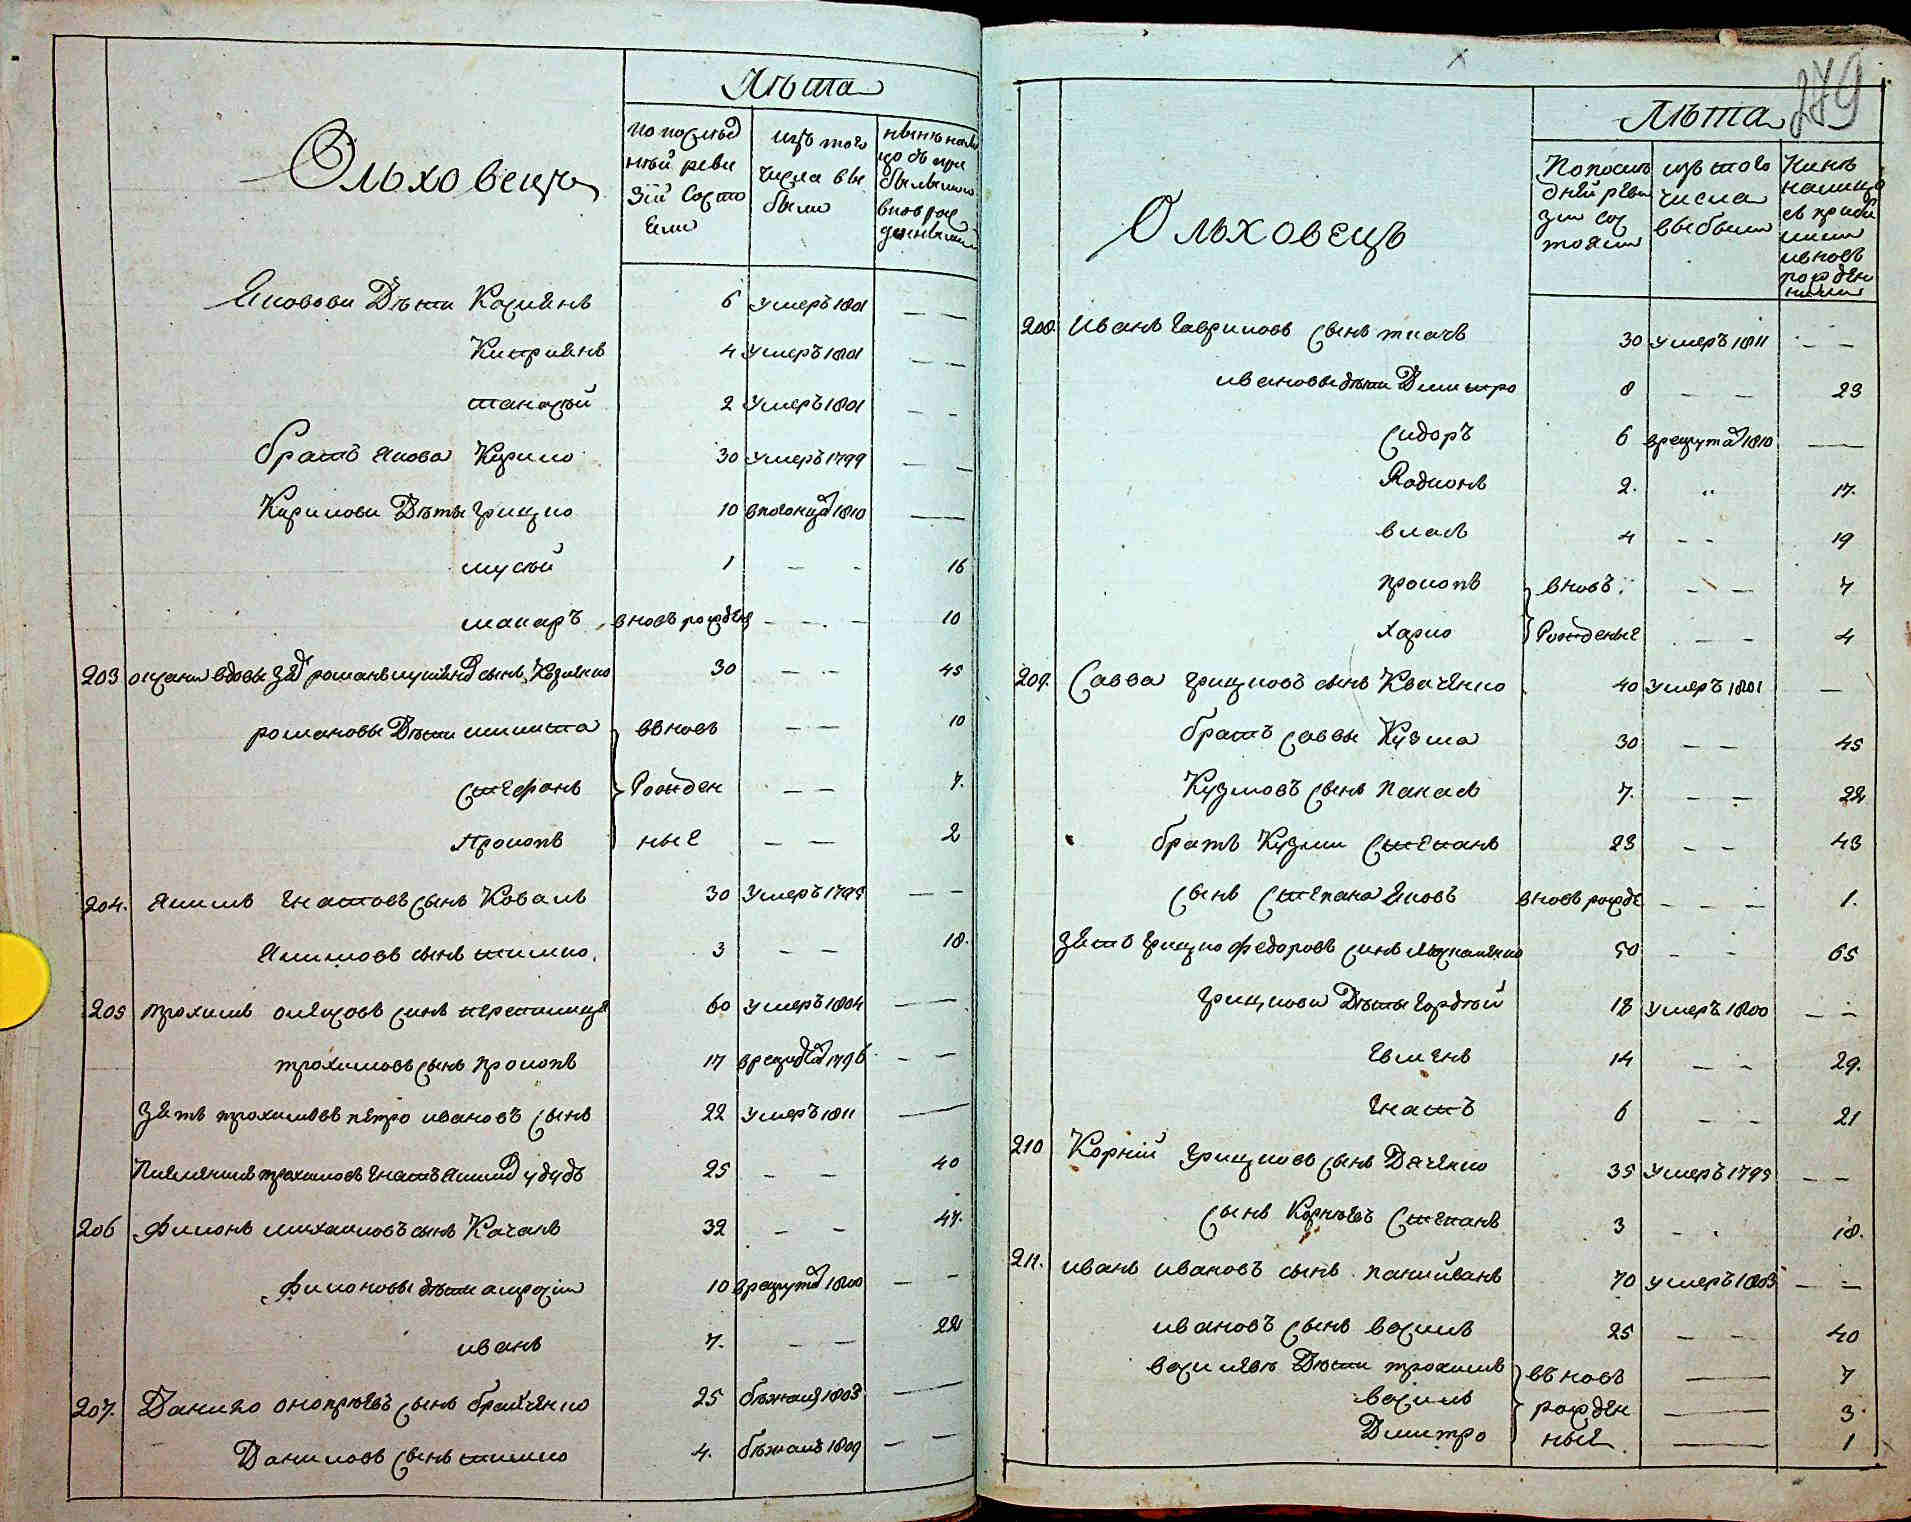 Ольховецъ
Лѣта
по послѣд
ней реви
зiи состо
яли
изъ того
числа вы
были
279
Яковови Дѣти Касиянъ 6 умеръ 1801 — —
Киприянъ 4 умеръ 1801 — —
танасiй 2 умеръ 1801 — —
братъ якова Кирило 30 умеръ 1799 — —
Кирилови Дѣты грицко 10 1810 —
мусiй 1 — - 16
макаръ вновъ рожден — - — 10
203 вдовы зят романъ сынъ 30 — - 45
романовы Дѣти микита ввновъ — — 10
стефанъ рожден — — 7.
Прокопъ ные — — 2
204. Якимъ гнатовъ сынъ Коваль 30 умеръ 1795 — —
Якимовъ сынъ тимко. 3 — — 18.
205 трохимъ сынъ 60 умеръ 1804 —
трохимовъ сынъ прокопъ 17 1796 - —
зять трохимовъ петро ивановъ сынъ 22 умеръ 1811 —
Племянникъ трохимовъ гнатъ удудъ 25 — - 40
206 Филонъ михаиловъ сынъ Качанъ 32 — - 47.
Филоновы дѣти 10 врекрута 1800 — —
иванъ 7. — — 22
207. Данило онопрѣевъ сынъ 25 бѣжалъ 1803 —
Даниловъ сынъ тимко 4. бѣжалъ 1809 — —
Ольховецъ
Лѣта
По послѣ
дней реви
зiи сос
тояли
изъ того
числа
выбыли
Нинѣ
налице
съ приби
лими
ивновъ
рожден
ними
208. Иванъ Гавриловъ сынъ ткачъ 30 умеръ 1811 - —
ивановы дѣти Димытро 8 — — 23
сидоръ 6 врекрута 1810 —
Родионъ 2. " 17.
власъ 4 - - 19
прокопъ вновъ - — 7
харко рожденые - — - 4
209. Савва грицковъ сынъ Квачѣнко 40 умеръ 1801 —
братъ саввы Кузма 30 — — 45
Кузмовъ сынъ панасъ 7. — — 22
братъ Кузми степанъ 28 — — 43
сынъ степана Яковъ вновъ рожде — — — 1.
зять грицко федоровъ синъ 50 - - 65
грицкови Дѣты гордѣй 18 умеръ 1800 — —
евменъ 14 — - 29.
гнатъ 6 - - 21
210 Корнiй грицковъ сынъ Дяченко 35 умеръ 1795 — —
сынъ Корнѣевъ степанъ 3 - . 18.
211. иванъ ивановъ сынъ 70 умеръ 1803 — —
ивановъ сынъ василь 25 — — 40
Дѣти трохимъ въновъ — 7
василь рожден — 3
Дмитро ные — 1